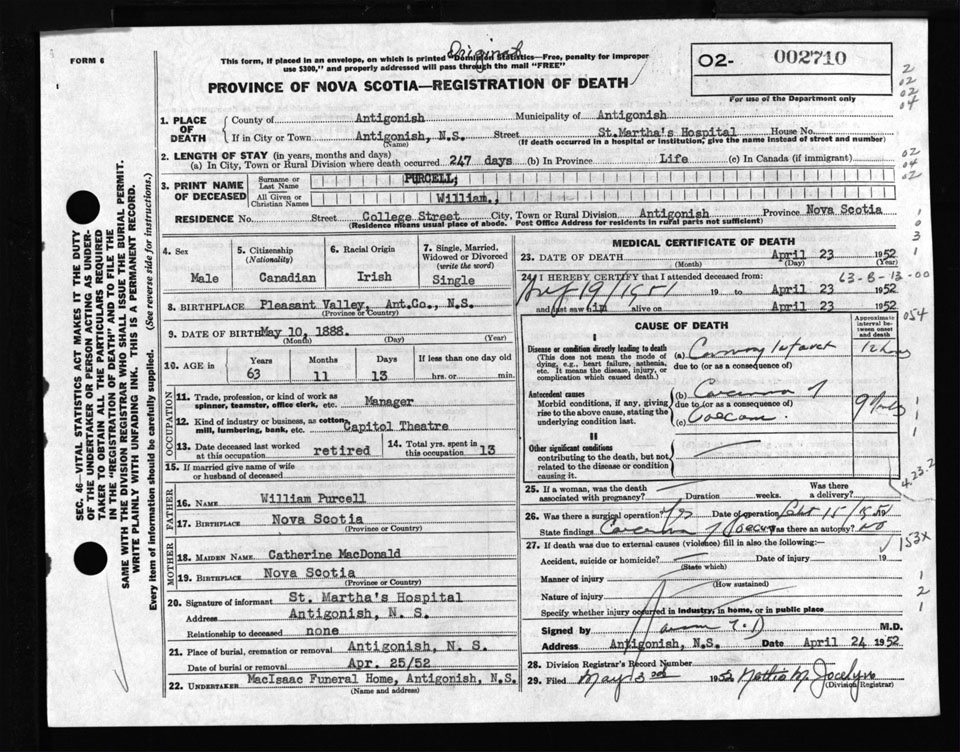 FORM 6
Original
This form, if placed in an envelope, on which is printed "Dominion Statistics—Free, penalty for improper
use $300," and properly addressed will pass through the mail "FREE"
PROVINCE OF NOVA SCOTIA—REGISTRATION OF DEATH
02- 002710
For use of the Department only
1. PLACE OF DEATH
County of Antigonish Municipality of Antigonish
If in City or Town Antigonish, N.S. Street St.Martha's Hospital House No.
(Name) (If death occurred in a hospital or institution, give the name instead of street and number)
2. LENGTH OF STAY (in years, months and days)
(a) In City, Town or Rural Division where death occurred 247 days (b) In Province Life (c) In Canada (if immigrant)
3. PRINT NAME OF DECEASED
Surname or Last Name PURCELL,
All Given or Christian Names William.,
RESIDENCE No. Street College Street City, Town or Rural Division Antigonish Province Nova Scotia
(Residence means usual place of abode. Post Office Address for residents in rural parts not sufficient)
4. Sex Male
5. Citizenship (Nationality) Canadian
6. Racial Origin Irish
7. Single, Married, Widowed or Divorced (write the word) Single
8. BIRTHPLACE Pleasant Valley, Ant.Co., N.S.
(Province or Country)
9. DATE OF BIRTH May 10, 1888.
(Month) (Day) (Year)
10. AGE in Years 63 Months 11 Days 13 If less than one day old hrs. or min.
OCCUPATION
11. Trade, profession, or kind of work as spinner, teamster, office clerk, etc. Manager
12. Kind of industry or business, as cotton mill, lumbering, bank, etc. Capitol Theatre
13. Date deceased last worked at this occupation retired
14. Total yrs. spent in this occupation 13
15. If married give name of wife or husband of deceased
FATHER
16. NAME William Purcell
17. BIRTHPLACE Nova Scotia
(Province or Country)
MOTHER
18. MAIDEN NAME Catherine MacDonald
19. BIRTHPLACE Nova Scotia
(Province or Country)
20. Signature of informant St. Martha's Hospital
Address Antigonish, N. S.
Relationship to deceased none
21. Place of burial, cremation or removal Antigonish, N. S.
Date of burial or removal Apr. 25/52
22. UNDERTAKER MacIsaac Funeral Home, Antigonish, N.S.
(Name and address)
MEDICAL CERTIFICATE OF DEATH
23. DATE OF DEATH April 23 1952
(Month) (Day) (Year)
24. I HEREBY CERTIFY that I attended deceased from: 63-8-13-00
19 1951 19 to April 23 1952
and last saw him alive on April 23 1952
CAUSE OF DEATH
Approximate interval between onset and death
I
Disease or condition directly leading to death
(This does not mean the mode of dying, e.g., heart failure, asthenia, etc. It means the disease, injury, or complication which caused death.)
(a) Coronary Infarct 12 hours
due to (or as a consequence of)
Antecedent causes
Morbid conditions, if any, giving rise to the above cause, stating the underlying condition last.
(b) Carcinoma of
due to (or as a consequence of)
(c) Caecum
II
Other significant conditions
contributing to the death, but not related to the disease or condition causing it.
25. If a woman, was the death associated with pregnancy? Duration weeks. Was there a delivery?
26. Was there a surgical operation? Yes Date of operation
State findings Carcinoma of Caecum Was there an autopsy? No
27. If death was due to external causes (violence) fill in also the following:—
Accident, suicide or homicide? Date of injury 19
(State which)
Manner of injury
(How sustained)
Nature of injury
Specify whether injury occurred in industry, in home, or in public place
Signed by M.D.
Address Antigonish, N.S. Date April 24 1952
28. Division Registrar's Record Number
29. Filed May 3rd 1952 Mattie M. Jocelyn
(Division Registrar)
SEC. 46—VITAL STATISTICS ACT MAKES IT THE DUTY
OF THE UNDERTAKER OR PERSON ACTING AS UNDER-
TAKER TO OBTAIN ALL THE PARTICULARS REQUIRED
IN THE "REGISTRATION OF DEATH" AND TO FILE THE
SAME WITH THE DIVISION REGISTRAR WHO SHALL ISSUE THE BURIAL PERMIT.
WRITE PLAINLY WITH UNFADING INK. THIS IS A PERMANENT RECORD.
Every item of information should be carefully supplied. (See reverse side for instructions.)
2
02
02
04
02
04
02
1
0
3
1
054
1
1
1
423.2
153X
1
2
1